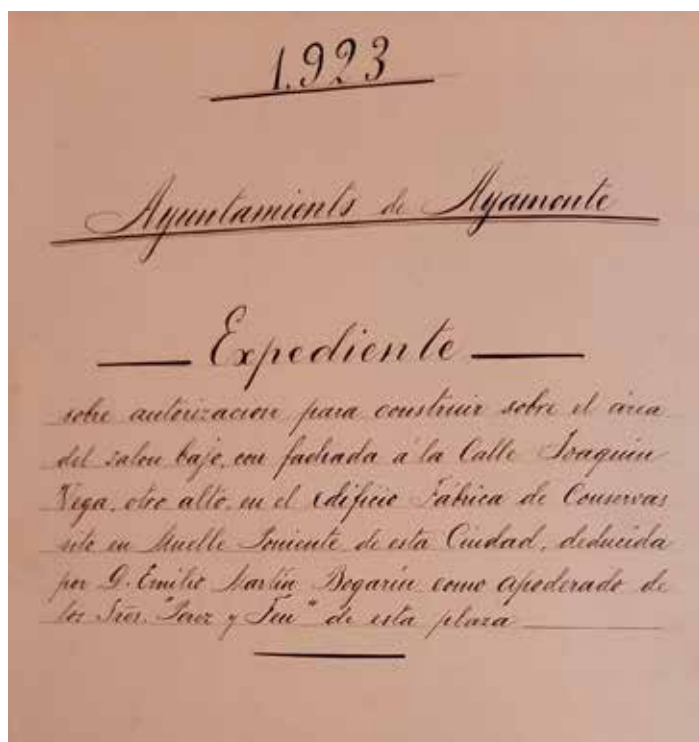 1.923
Ayuntamiento de Ayamonte
Expediente
sobre autorizacion para construir sobre el área
del salon bajo, con fachada á la Calle Joaquin
Vega, otro alto, en el edificio Fábrica de Conservas
sito en Muelle Poniente de esta Ciudad, deducida
por D. Emilio Martin Bogarin como apoderado de
los Sres. "Perez y Feu" de esta plaza